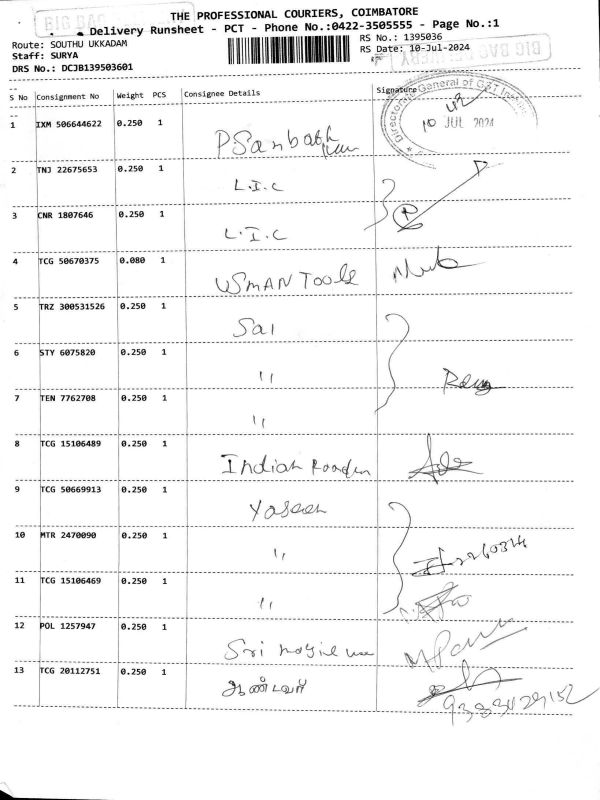 THE PROFESSIONAL COURIERS, COIMBATORE
Delivery Runsheet - PCT - Phone No.:0422-3505555 - Page No.:1
Route: SOUTHU UKKADAM
RS No.: 1395036
Staff: SURYA
RS Date: 10-Jul-2024
BIG BAG DELIVERY
DRS No.: DCJB139503601
S No Consignment No Weight PCS Consignee Details Signature
Directorate General of GST
10 JUL 2024
1 IXM 506644622 0.250 1
2 TNJ 22675653 0.250 1 L.I.C
3 CNR 1807646 0.250 1 L.I.C
4 TCG 50670375 0.080 1 USMAN Tools
5 TRZ 300531526 0.250 1 Sai
6 STY 6075820 0.250 1 "
7 TEN 7762708 0.250 1 "
8 TCG 15106489 0.250 1 Indian
9 TCG 50669913 0.250 1 Yaseen
10 MTR 2470090 0.250 1 "
11 TCG 15106469 0.250 1 "
12 POL 1257947 0.250 1 Sri
13 TCG 20112751 0.250 1 ஆண்டவர்